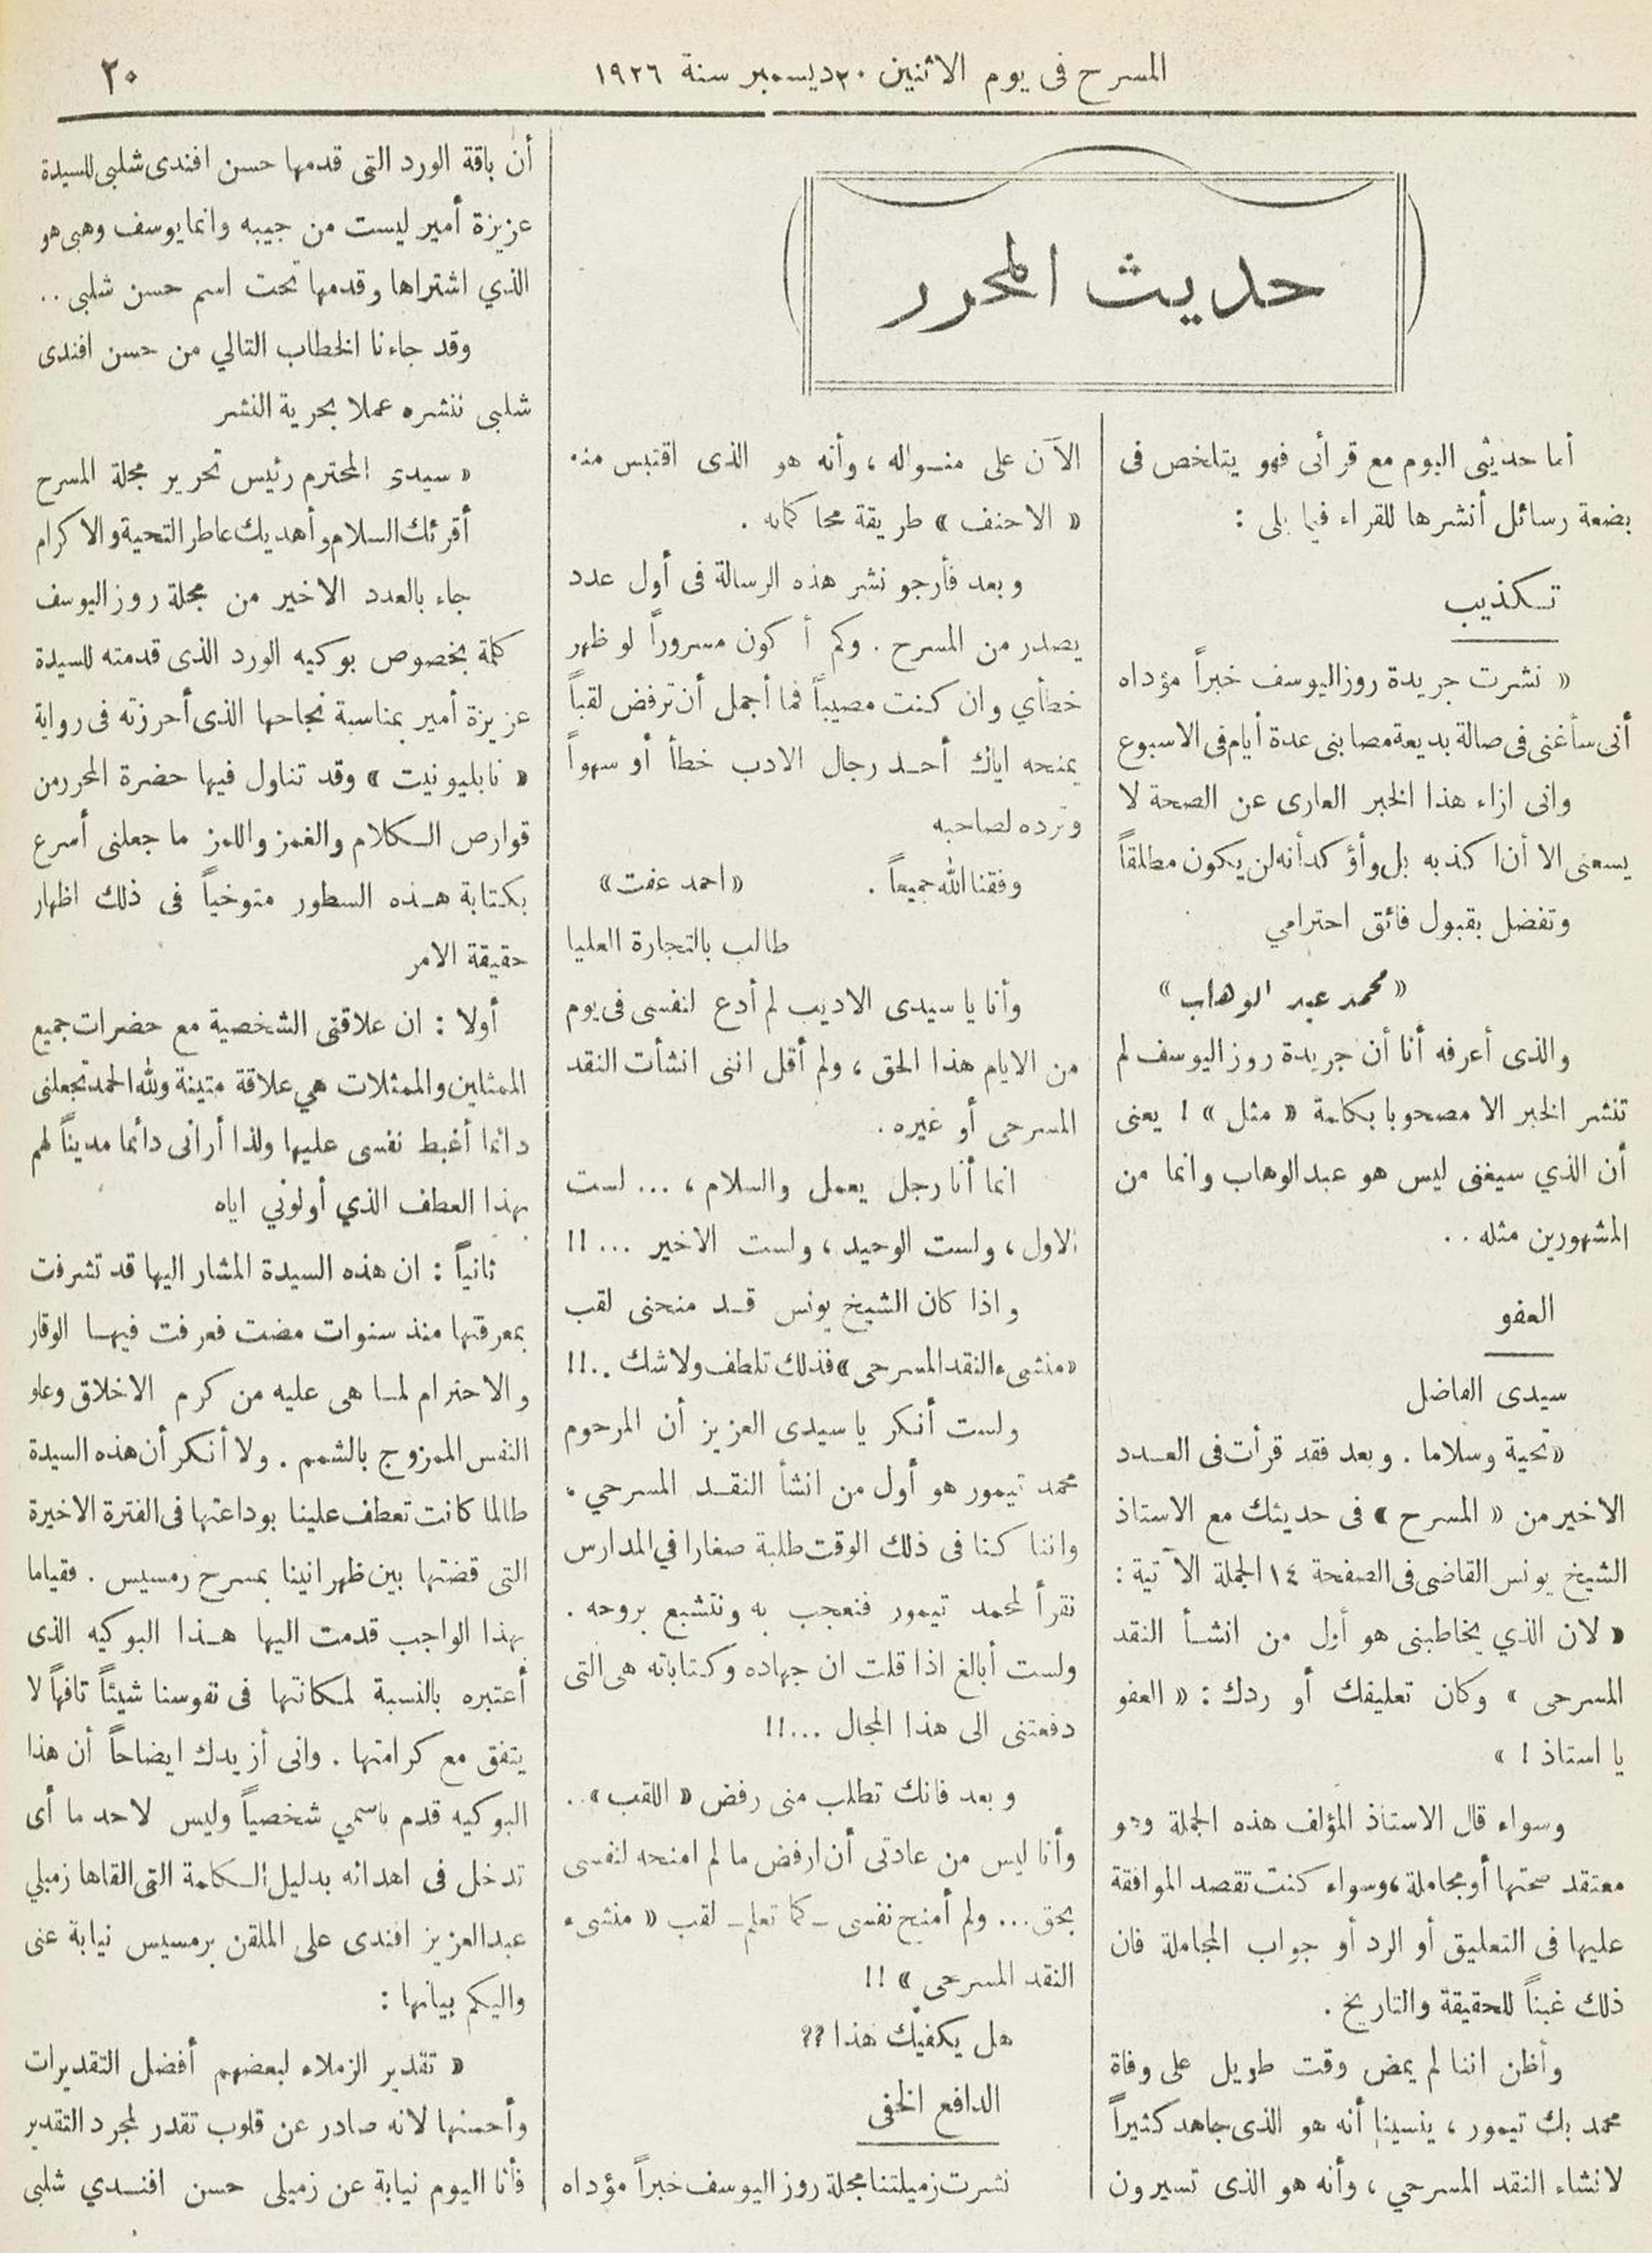 المسرح فى يوم الاثنين ٢٠ ديسمبر سنة ١٩٢٦
٢٠
حديث المحرر
أما حديثى اليوم مع قرائى فهو يتلخص فى
بضعة رسائل أنشرها للقراء فيما يلى :
تكذيب
« نشرت جريدة روز اليوسف خبراً مؤداه
أنى سأغنى فى صالة بديعة مصابنى عدة أيام فى الاسبوع
وانى ازاء هذا الخبر العارى عن الصحة لا
يسعنى الا أن اكذبه بل وأؤكد أنه لن يكون مطلقاً
وتفضل بقبول فائق احترامي
« محمد عبد الوهاب »
والذى أعرفه أنا أن جريدة روز اليوسف لم
تنشر الخبر الا مصحوبا بكلمة « مثل » ! يعنى
أن الذي سيغنى ليس هو عبد الوهاب وانما من
المشهورين مثله . .
العفو
سيدى الفاضل
« تحية وسلاما . وبعد فقد قرأت فى العدد
الاخير من « المسرح » فى حديثك مع الاستاذ
الشيخ يونس القاضى فى الصفحة ١٤ الجملة الآتية :
« لان الذي يخاطبنى هو أول من انشأ النقد
المسرحى » وكان تعليقك أو ردك : « العفو
يا استاذ ! »
وسواء قال الاستاذ المؤلف هذه الجملة وهو
معتقد صحتها أو مجاملة ، وسواء كنت تقصد الموافقة
عليها فى التعليق أو الرد أو جواب المجاملة فان
ذلك غبناً للحقيقة والتاريخ .
وأظن اننا لم يمض وقت طويل على وفاة
محمد بك تيمور ، ينسينا أنه هو الذى جاهد كثيراً
لانشاء النقد المسرحي ، وأنه هو الذى تسيرون
الآن على منواله ، وأنه هو الذى اقتبس منه
« الاحنف » طريقة محاكماته .
وبعد فأرجو نشر هذه الرسالة فى أول عدد
يصدر من المسرح . وكم أكون مسروراً لو ظهر
خطأي وان كنت مصيباً فما أجمل أن ترفض لقباً
يمنحه اياك أحد رجال الادب خطأ أو سهواً
وترده لصاحبه
وفقنا الله جميعاً . « احمد عفت »
طالب بالتجارة العليا
وأنا يا سيدى الاديب لم أدع لنفسى فى يوم
من الايام هذا الحق ، ولم أقل اننى انشأت النقد
المسرحى أو غيره .
انما أنا رجل يعمل والسلام ، ... لست
الاول ، ولست الوحيد ، ولست الاخير ... !!
واذا كان الشيخ يونس قد منحنى لقب
« منشىء النقد المسرحى » فذلك تلطف ولا شك ..!!
ولست أنكر يا سيدى العزيز أن المرحوم
محمد تيمور هو أول من انشأ النقد المسرحي ،
واننا كنا فى ذلك الوقت طلبة صغارا في المدارس
نقرأ لمحمد تيمور فنعجب به ونتشبع بروحه .
ولست أبالغ اذا قلت ان جهاده وكتاباته هى التى
دفعتنى الى هذا المجال ...!!
وبعد فانك تطلب منى رفض « اللقب » ..
وأنا ليس من عادتى أن ارفض ما لم امنحه لنفسى
بحق ... ولم أمنح نفسى ـ كما تعلم ـ لقب « منشىء
النقد المسرحى » !!
هل يكفيك هذا ؟؟
الدافع الخفى
نشرت زميلتنا مجلة روز اليوسف خبراً مؤداه
أن باقة الورد التى قدمها حسن افندى شلبى للسيدة
عزيزة أمير ليست من جيبه وانما يوسف وهبى هو
الذي اشتراها وقدمها تحت اسم حسن شلبى . .
وقد جاءنا الخطاب التالي من حسن افندى
شلبى ننشره عملا بحرية النشر
« سيدى المحترم رئيس تحرير مجلة المسرح
أقرئك السلام وأهديك عاطر التحية والاكرام
جاء بالعدد الاخير من مجلة روز اليوسف
كلمة بخصوص بوكيه الورد الذى قدمته للسيدة
عزيزة أمير بمناسبة نجاحها الذى أحرزته فى رواية
« نابليونيت » وقد تناول فيها حضرة المحرر من
قوارص الكلام والغمز واللمز ما جعلنى أسرع
بكتابة هذه السطور متوخياً فى ذلك اظهار
حقيقة الامر
أولا : ان علاقتى الشخصية مع حضرات جميع
الممثلين والممثلات هي علاقة متينة ولله الحمد تجعلنى
دائما أغبط نفسى عليها ولذا أرانى دائما مديناً لهم
بهذا العطف الذي أولوني اياه
ثانياً : ان هذه السيدة المشار اليها قد تشرفت
بمعرفتها منذ سنوات مضت فعرفت فيها الوقار
والاحترام لما هى عليه من كرم الاخلاق وعلو
النفس الممزوج بالشمم . ولا أنكر أن هذه السيدة
طالما كانت تعطف علينا بوداعتها فى الفترة الاخيرة
التى قضتها بين ظهرانينا بمسرح رمسيس . فقياما
بهذا الواجب قدمت اليها هذا البوكيه الذى
أعتبره بالنسبة لمكانتها فى نفوسنا شيئاً تافهاً لا
يتفق مع كرامتها . وانى أزيدك ايضاحاً أن هذا
البوكيه قدم باسمي شخصياً وليس لاحد ما أى
تدخل فى اهدائه بدليل الكلمة التى القاها زميلي
عبد العزيز افندى على الملقن برمسيس نيابة عنى
واليكم بيانها :
« تقدير الزملاء لبعضهم أفضل التقديرات
وأحسنها لانه صادر عن قلوب تقدر لمجرد التقدير
فأنا اليوم نيابة عن زميلى حسن افندي شلبى